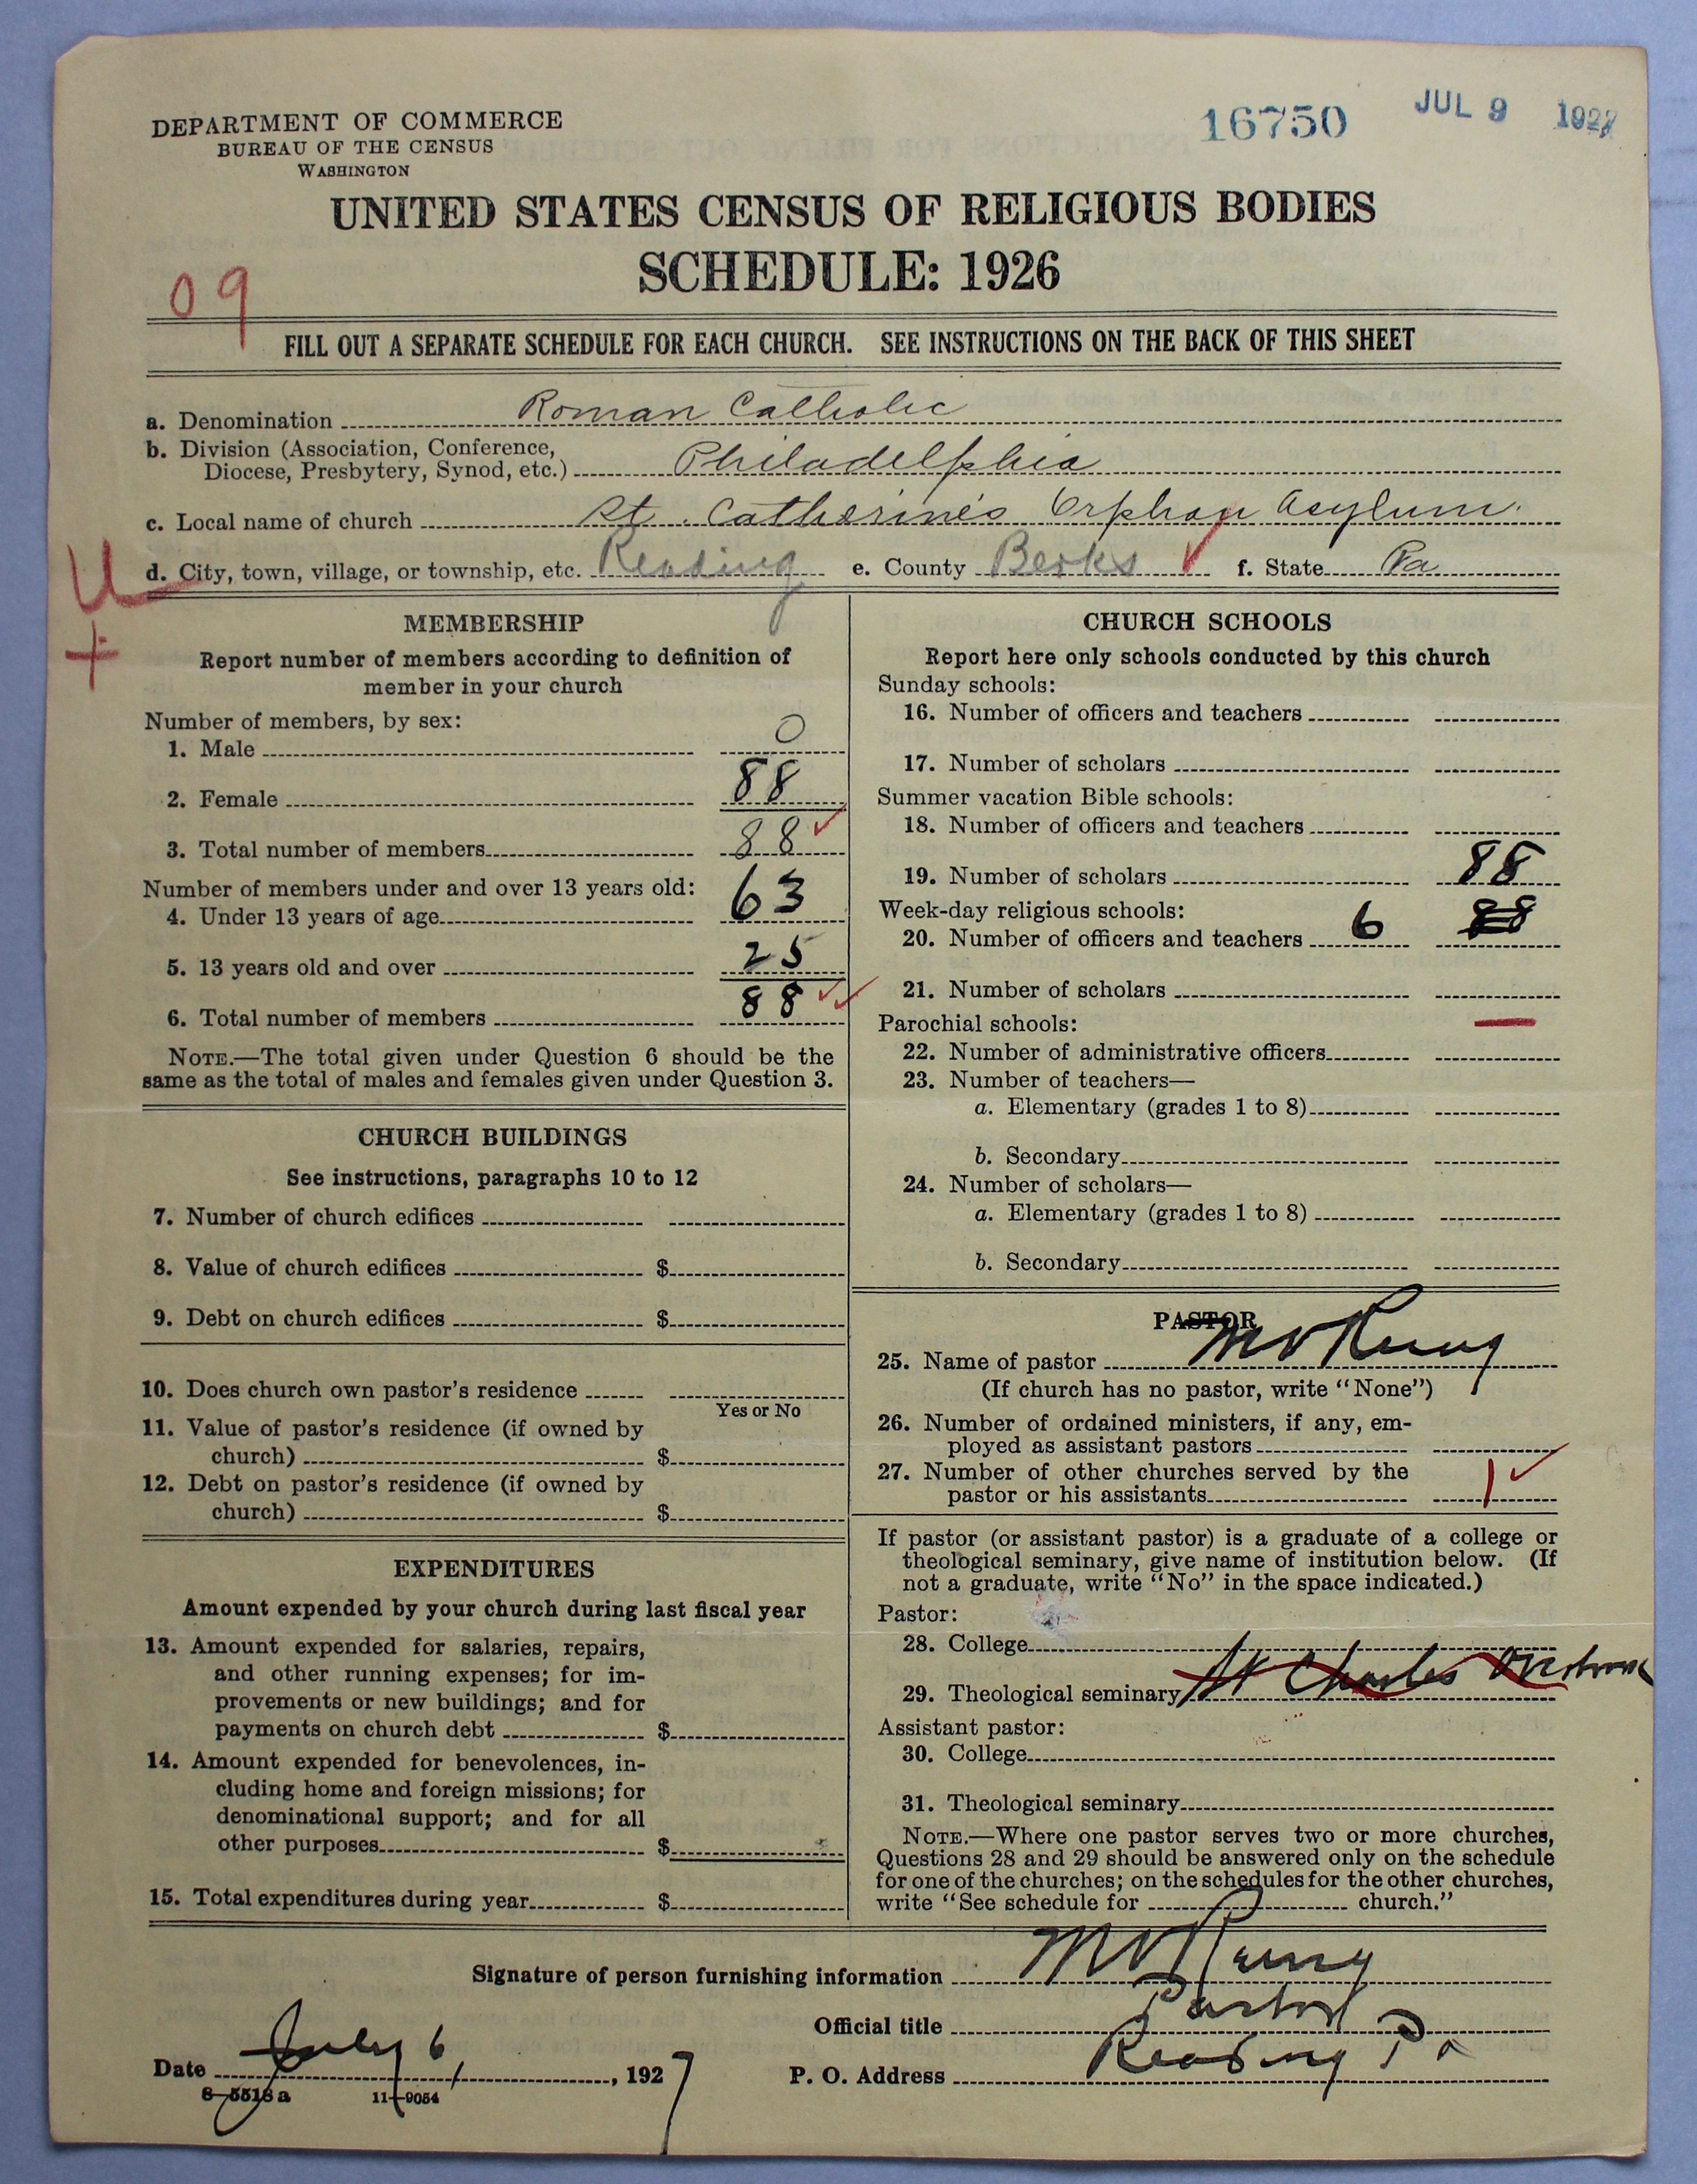 DEPARTMENT OF COMMERCE
BUREAU OF THE CENSUS
WASHINGTON
16750 JUL 9 1927
UNITED STATES CENSUS OF RELIGIOUS BODIES
SCHEDULE: 1926
09
FILL OUT A SEPARATE SCHEDULE FOR EACH CHURCH. SEE INSTRUCTIONS ON THE BACK OF THIS SHEET
a. Denomination Roman Catholic
b. Division (Association, Conference,
Diocese, Presbytery, Synod, etc.) Philadelphia
c. Local name of church St. Catherine's Orphan Asylum.
d. City, town, village, or township, etc. Reading e. County Berks f. State Pa
U
+
MEMBERSHIP
Report number of members according to definition of
member in your church
Number of members, by sex:
1. Male 0
2. Female 88
3. Total number of members 88
Number of members under and over 13 years old:
4. Under 13 years of age 63
5. 13 years old and over 25
6. Total number of members 88
NOTE.—The total given under Question 6 should be the
same as the total of males and females given under Question 3.
CHURCH BUILDINGS
See instructions, paragraphs 10 to 12
7. Number of church edifices
8. Value of church edifices $
9. Debt on church edifices $
10. Does church own pastor's residence
Yes or No
11. Value of pastor's residence (if owned by
church) $
12. Debt on pastor's residence (if owned by
church) $
EXPENDITURES
Amount expended by your church during last fiscal year
13. Amount expended for salaries, repairs,
and other running expenses; for im-
provements or new buildings; and for
payments on church debt $
14. Amount expended for benevolences, in-
cluding home and foreign missions; for
denominational support; and for all
other purposes $
15. Total expenditures during year $
CHURCH SCHOOLS
Report here only schools conducted by this church
Sunday schools:
16. Number of officers and teachers
17. Number of scholars
Summer vacation Bible schools:
18. Number of officers and teachers
19. Number of scholars 88
Week-day religious schools:
20. Number of officers and teachers 6 88
21. Number of scholars
Parochial schools:
22. Number of administrative officers
23. Number of teachers—
a. Elementary (grades 1 to 8)
b. Secondary
24. Number of scholars—
a. Elementary (grades 1 to 8)
b. Secondary
PASTOR
25. Name of pastor
(If church has no pastor, write "None")
26. Number of ordained ministers, if any, em-
ployed as assistant pastors
27. Number of other churches served by the
pastor or his assistants 1
If pastor (or assistant pastor) is a graduate of a college or
theological seminary, give name of institution below. (If
not a graduate, write "No" in the space indicated.)
Pastor:
28. College
29. Theological seminary St Charles Overbrook
Assistant pastor:
30. College
31. Theological seminary
NOTE.—Where one pastor serves two or more churches,
Questions 28 and 29 should be answered only on the schedule
for one of the churches; on the schedules for the other churches,
write "See schedule for church."
Signature of person furnishing information
Official title Pastor
Date July 6, 1927 P. O. Address Reading Pa
8—5518a 11—9054